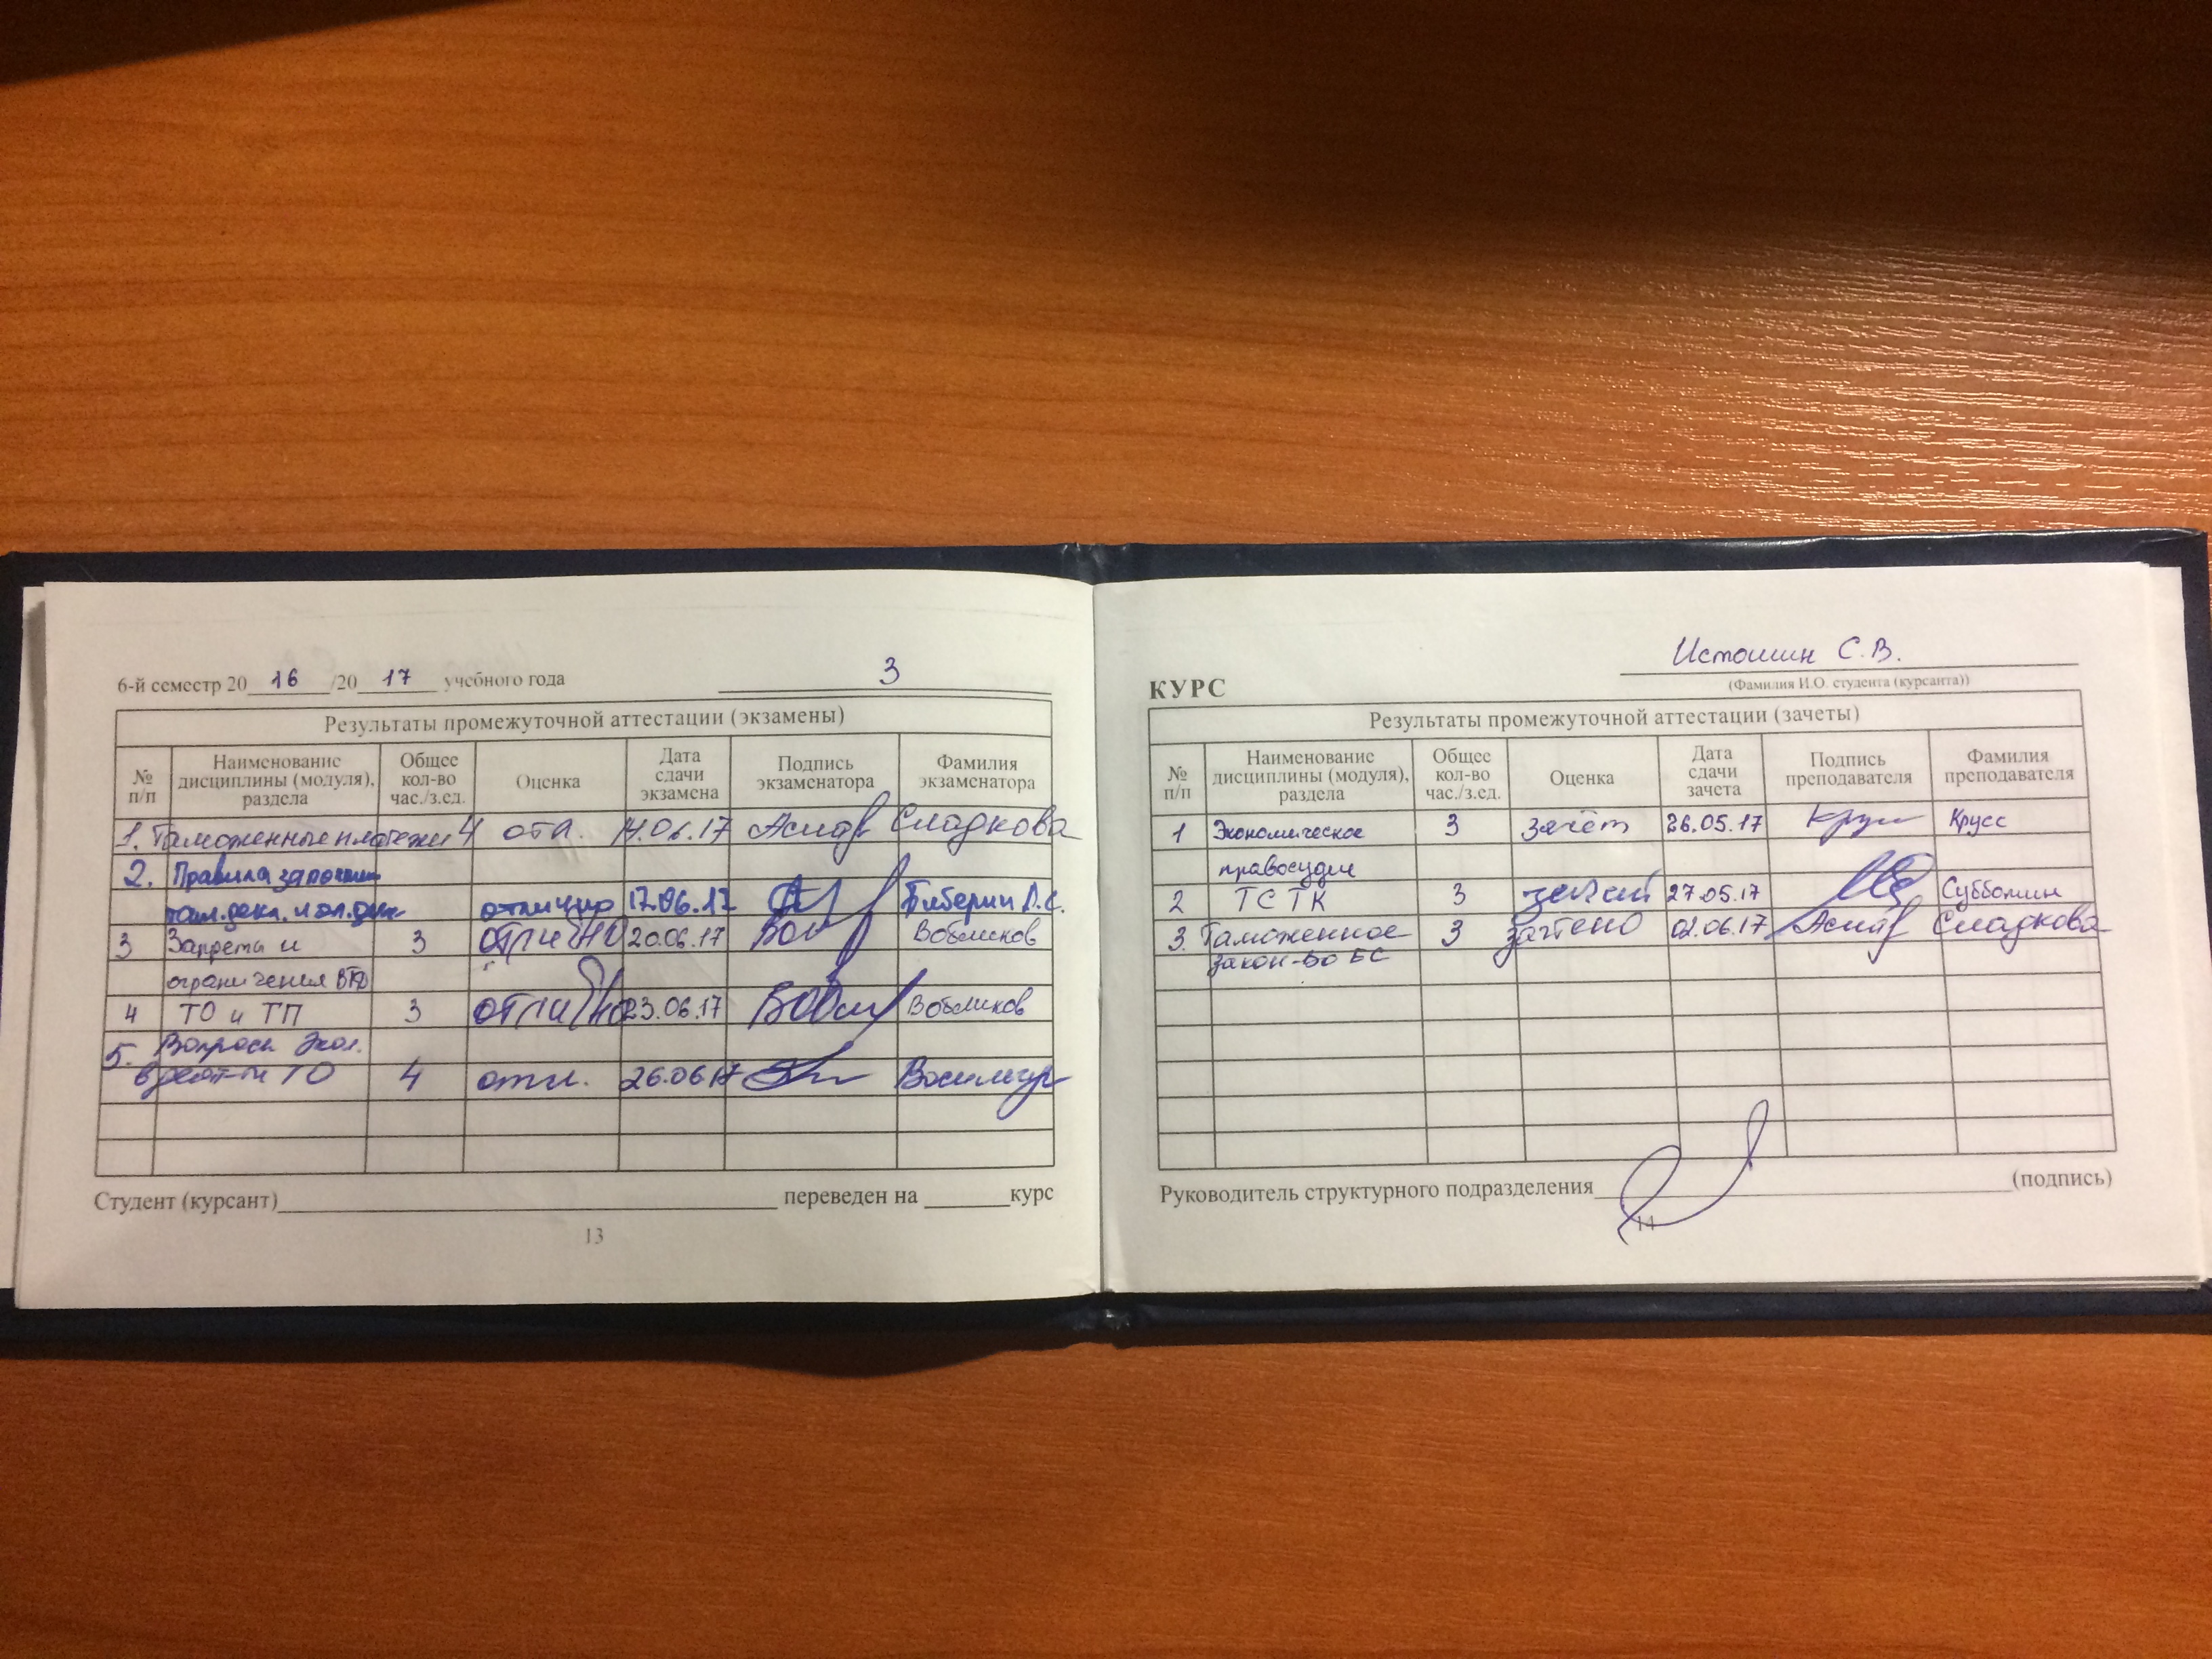 6-й семестр 20 16 /20 17 учебного года 3
Результаты промежуточной аттестации (экзамены)
№ п/п Наименование дисциплины (модуля), раздела Общее кол-во час./з.ед. Оценка Дата сдачи экзамена Подпись экзаменатора Фамилия экзаменатора
1. Таможенные платежи 4 отл. 14.06.17 Сладкова
2. Правила
отлично 17.06.17
3 Запреты и 3 отлично 20.06.17
ограничения ВТД
4 ТО и ТП 3 отлично 23.06.17
5. Вопросы Экол.
ТО 4 отл. 26.06.17
Студент (курсант) переведен на курс
13
Истошин С.В.
КУРС (Фамилия И.О. студента (курсанта))
Результаты промежуточной аттестации (зачеты)
№ п/п Наименование дисциплины (модуля), раздела Общее кол-во час./з.ед. Оценка Дата сдачи зачета Подпись преподавателя Фамилия преподавателя
1 Экономическое 3 зачёт 26.05.17 Крусс
правосудие
2 ТС ТК 3 27.05.17 Субботин
3. Таможенное 3 зачтено 02.06.17 Сладкова
закон-во ЕС
Руководитель структурного подразделения (подпись)
14